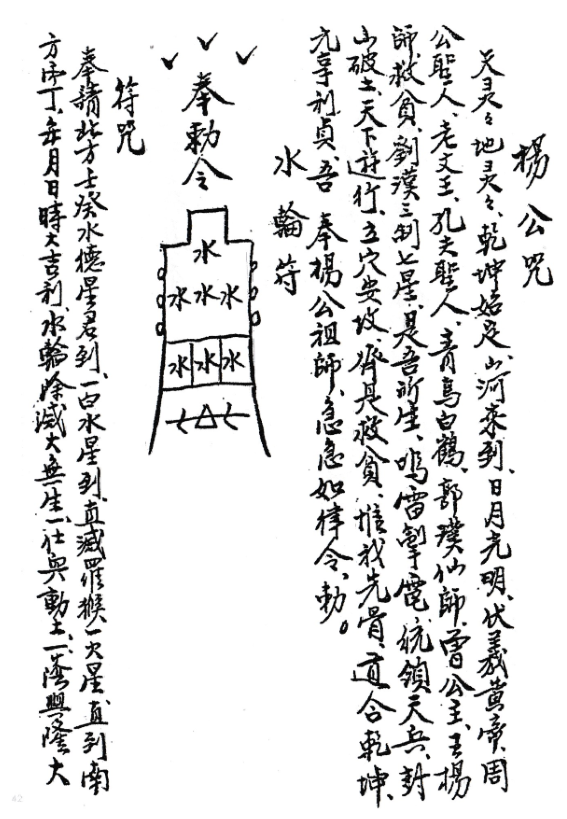 楊公咒
天灵々地灵々、乾坤始足、山河來到、日月光明、伏羲黄帝、周
公聖人、老文王、孔夫聖人、青烏白鶴、郭璞仙師、曾公主、王楊
師救貧、劉漢三制七星、是吾所生、鳴雷掣電、統領天兵、封
山破土、天下遊行、立穴安坟、府是救貧、惟我先骨、道合乾坤、
元亨利貞、吾奉楊公祖師、急急如律令、勅。
水輪符
奉勅令
水
水水水
水水水
符咒
奉請北方壬癸水德星君到、一白水星到、直滅羅猴一火星、直到南
方丙丁、年月日時大吉利、水輪除滅大無生、一任興動土、一蔭興隆大
42